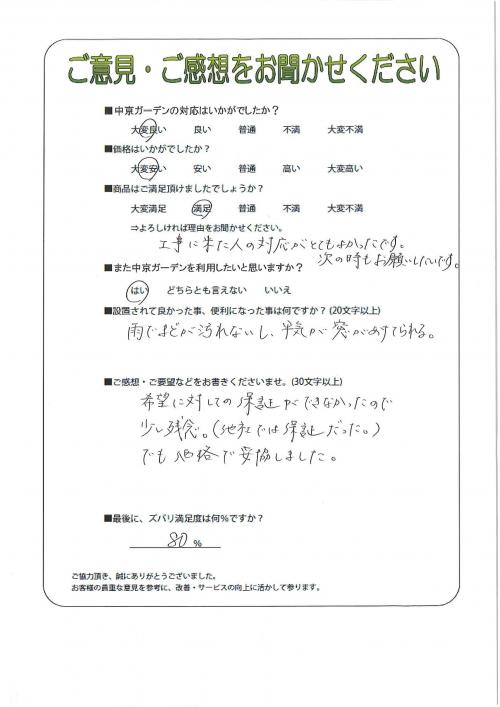 ご意見・ご感想をお聞かせください
■中京ガーデンの対応はいかがでしたか?
大変良い 良い 普通 不満 大変不満
■価格はいかがでしたか?
大変安い 安い 普通 高い 大変高い
■商品はご満足頂けましたでしょうか?
大変満足 満足 普通 不満 大変不満
⇒よろしければ理由をお聞かせください。
工事に来た人の対応がとてもよかったです。
次の時もお願いしたいです。
■また中京ガーデンを利用したいと思いますか?
はい どちらとも言えない いいえ
■設置されて良かった事、便利になった事は何ですか? (20文字以上)
雨でまどが汚れないし、平気で窓があけてられる。
■ご感想・ご要望などをお書きくださいませ。(30文字以上)
希望に対しての保証ができなかったので
少し残念。(他社では保証だった。)
でも価格で妥協しました。
■最後に、ズバリ満足度は何%ですか?
80 %
ご協力頂き、誠にありがとうございました。
お客様の貴重な意見を参考に、改善・サービスの向上に活かして参ります。